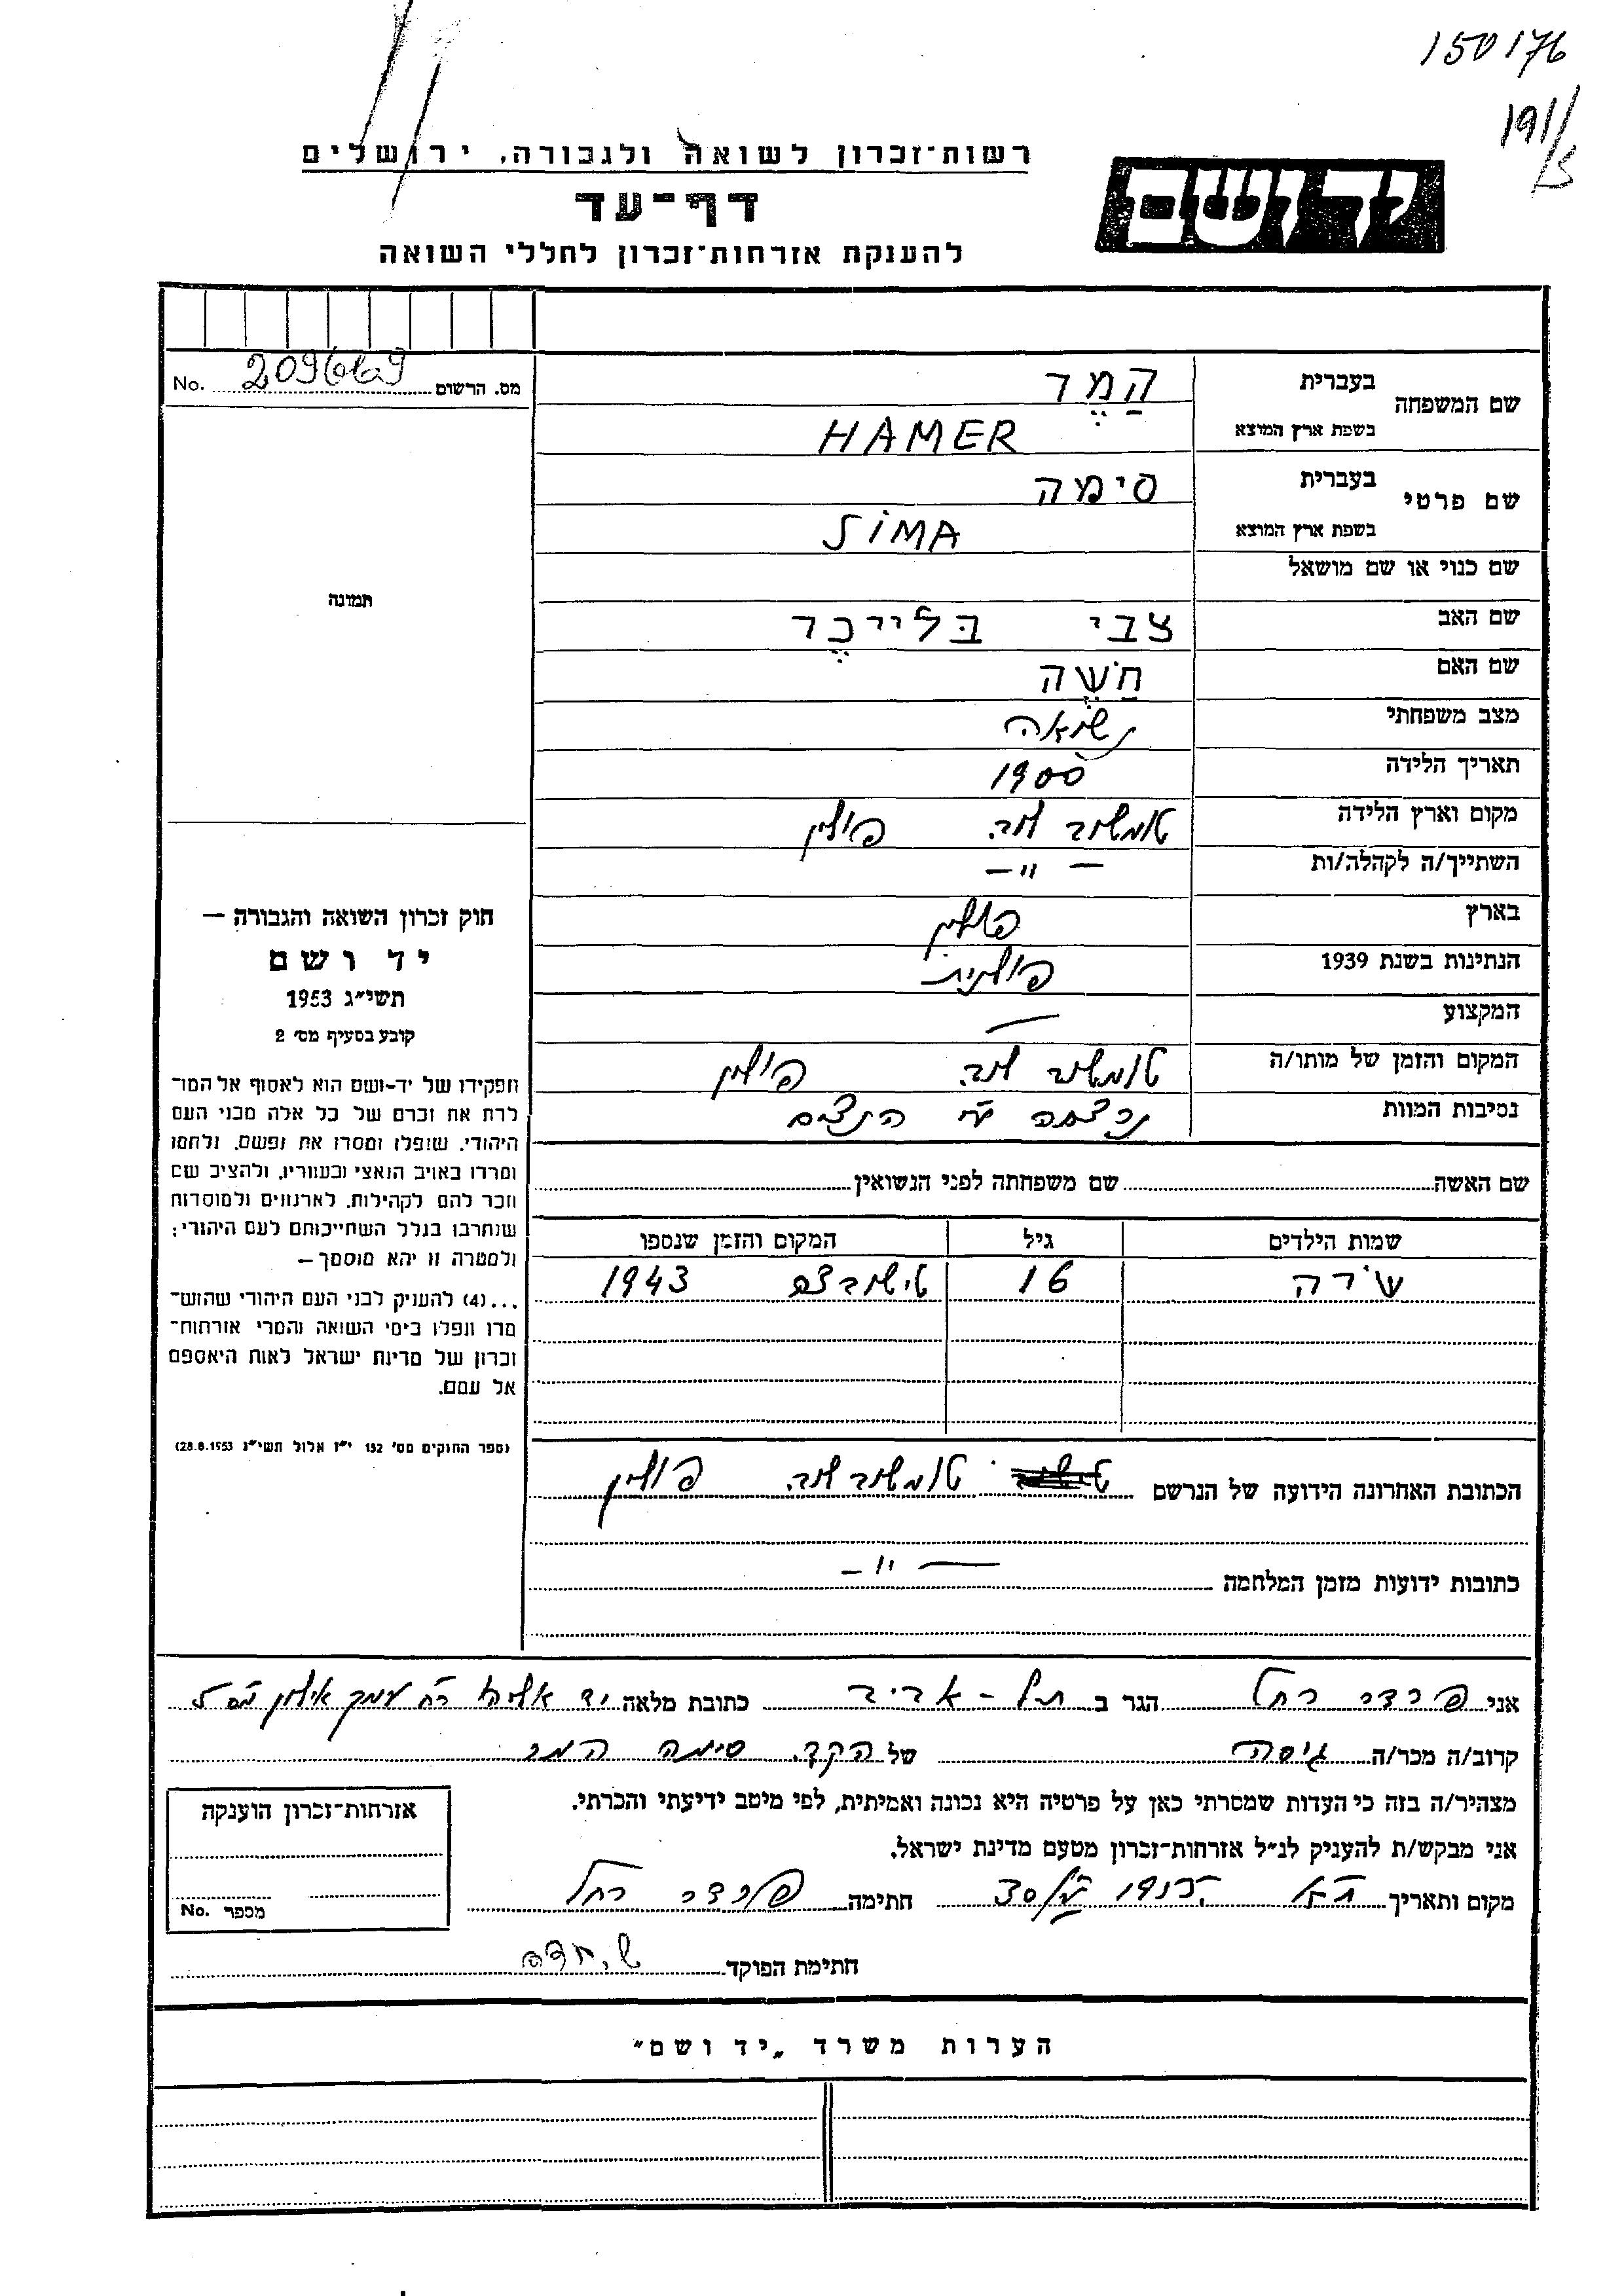 150176
191/5
רשות־זכרון לשואה ולגבורה, ירושלים
יד ושם
דף־עד
להענקת אזרחות־זכרון לחללי השואה
No. מס. הרשום
שם המשפחה בעברית הַמֶר
בשפת ארץ המוצא HAMER
שם פרטי בעברית סימה
בשפת ארץ המוצא SIMA
שם כנוי או שם מושאל
שם האב צבי בלייכֶר
שם האם חַשֶה
מצב משפחתי נשואה
תאריך הלידה 1900
מקום וארץ הלידה טומשוב לוב. פולין
השתייך/ה לקהלה/ות — " —
בארץ פולין
הנתינות בשנת 1939 פולנית
המקצוע —
המקום והזמן של מותו/ה טומשוב לוב. פולין
נסיבות המוות נרצחה ע"י הנאצים
תמונה
חוק זכרון השואה והגבורה —
יד ושם
תשי"ג 1953
קובע בסעיף מס' 2
תפקידו של יד-ושם הוא לאסוף אל המו־
לדת את זכרם של כל אלה מבני העם
היהודי, שנפלו ומסרו את נפשם, נלחמו
ומרדו באויב הנאצי ובעוזריו, ולהציב שם
וזכר להם, לקהילות, לארגונים ולמוסדות
שנחרבו בגלל השתייכותם לעם היהודי;
ולמטרה זו יהא מוסמך —
...(4) להעניק לבני העם היהודי שהוש־
מדו ונפלו בימי השואה והמרי אזרחות־
זכרון של מדינת ישראל לאות היאספם
אל עמם.
(ספר החוקים מס' 132 י"ז אלול תשי"ג 28.8.1953)
שם האשה שם משפחתה לפני הנשואין
שמות הילדים גיל המקום והזמן שנספו
שרה 16 1943
הכתובת האחרונה הידועה של הנרשם טומשוב לוב. פולין
כתובות ידועות מזמן המלחמה — " —
אני פרדר רחל הגר ב תל-אביב כתובת מלאה יד אליהו רח' עמק אילון מס 5
קרוב/ה מכר/ה גיסה של סימה המר
מצהיר/ה בזה כי העדות שמסרתי כאן על פרטיה היא נכונה ואמיתית, לפי מיטב ידיעתי והכרתי.
אני מבקש/ת להעניק לנ"ל אזרחות־זכרון מטעם מדינת ישראל.
מקום ותאריך חתימה פרדר רחל
חתימת הפוקד
אזרחות־זכרון הוענקה
No. מספר
הערות משרד „יד ושם"